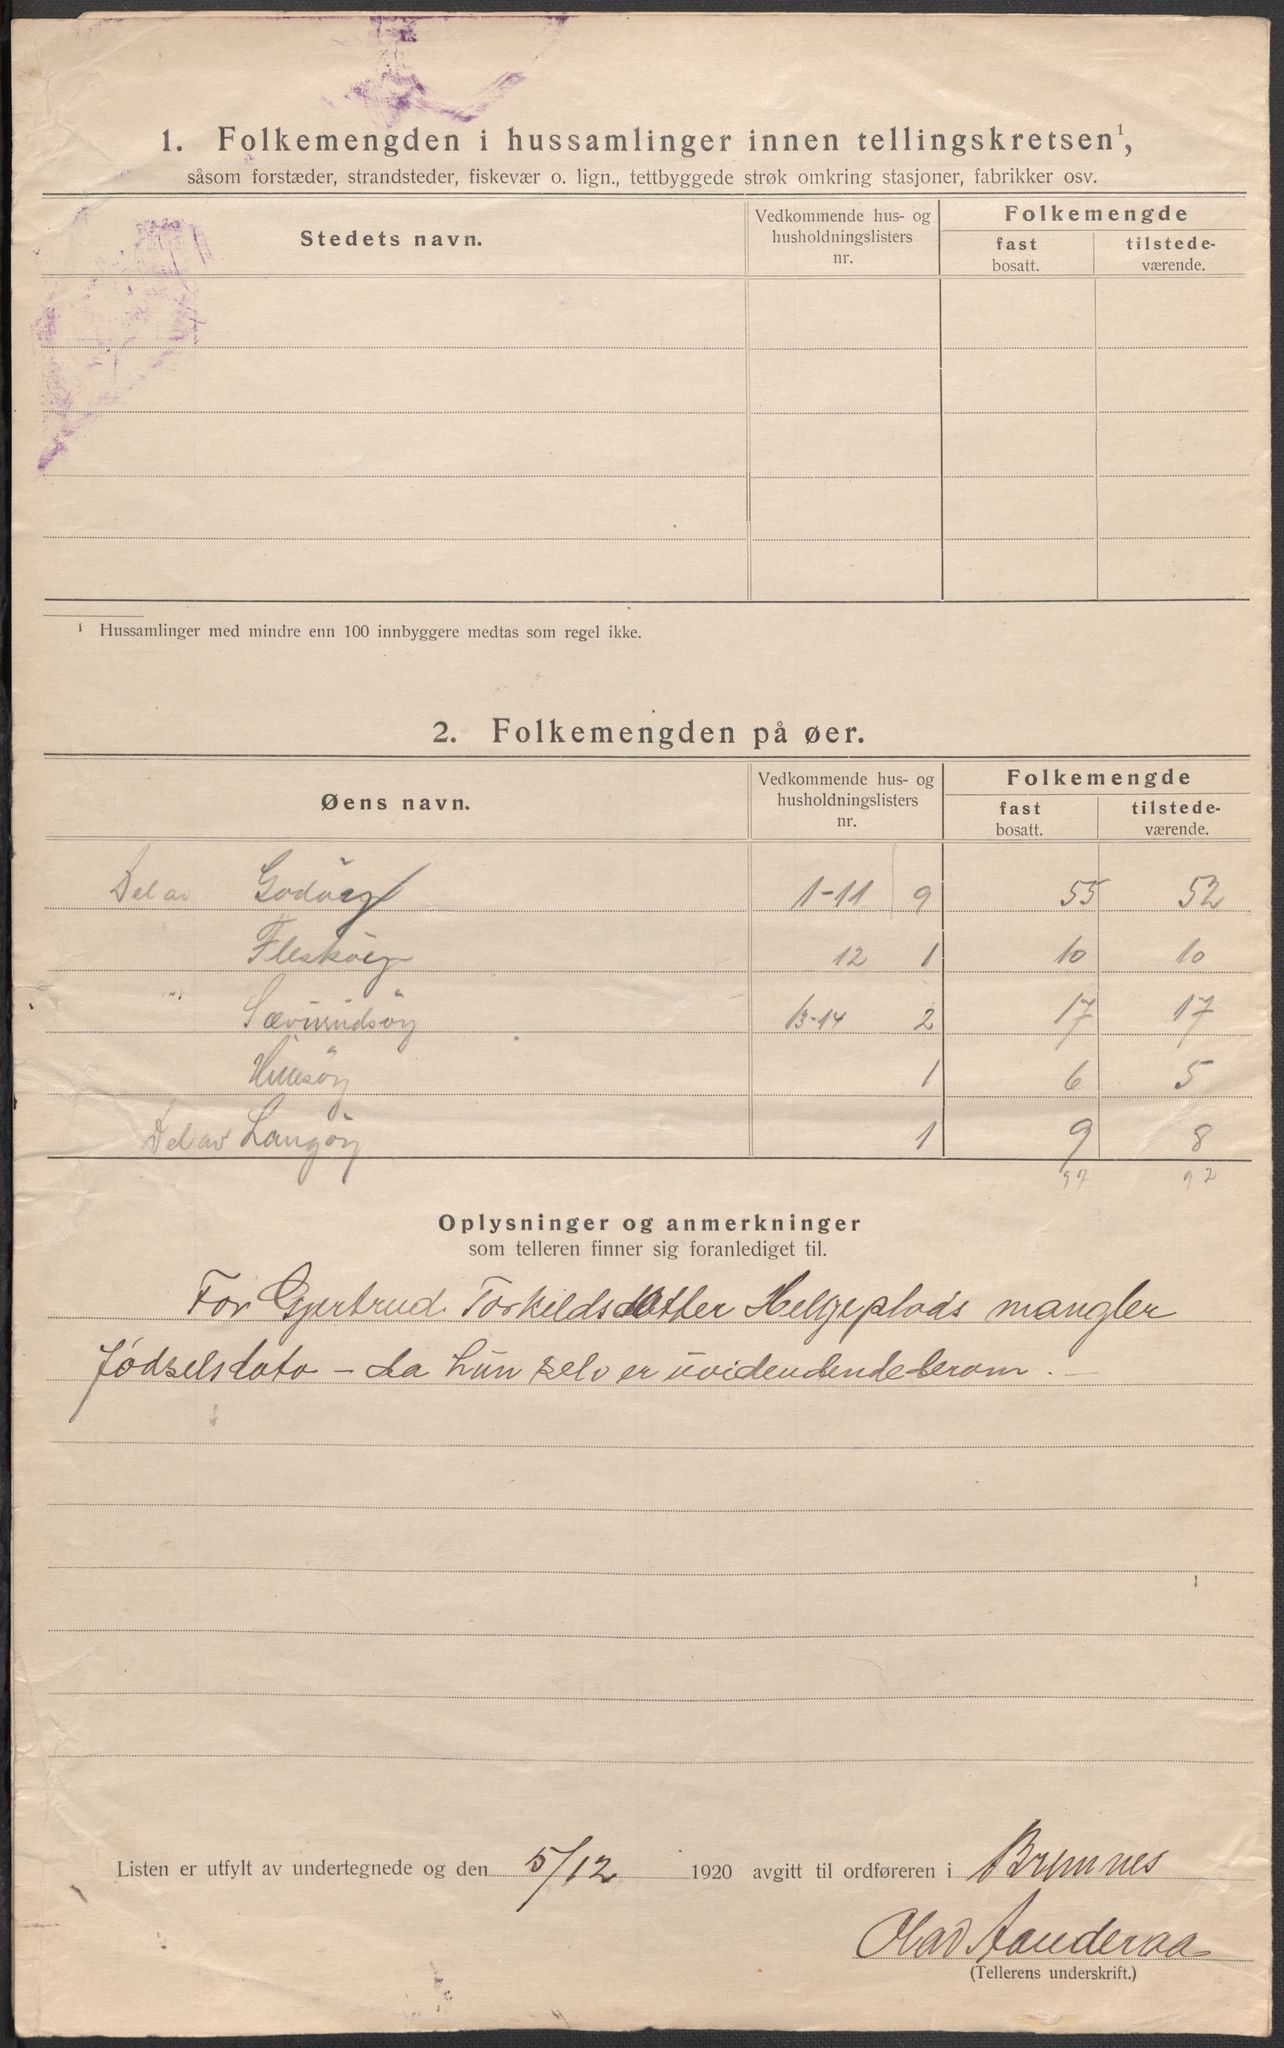 1. Folkemengden i hussamlinger innen tellingskretsen¹,
såsom forstæder, strandsteder, fiskevær o. lign., tettbyggede strøk omkring stasjoner, fabrikker osv.
Stedets navn.
Vedkommende hus- og
husholdningslisters
nr.
Folkemengde
fast
bosatt.
tilstede-
værende.
¹ Hussamlinger med mindre enn 100 innbyggere medtas som regel ikke.
2. Folkemengden på øer.
Øens navn.
Vedkommende hus- og
husholdningslisters
nr.
Folkemengde
fast
bosatt.
tilstede-
værende.
Del av Godöy 1-11 9 55 52
Flesköy 12 1 10 10
13-14 2 17 17
1 6 5
Del av Langöy 1 9 8
97 92
Oplysninger og anmerkninger
som telleren finner sig foranlediget til.
For Gjertrud Torkildsdotter Helgeplads mangler
fødselsdato - da hun selv er uvidendende derom. -
Listen er utfylt av undertegnede og den 5/12 1920 avgitt til ordføreren i Bremnes
Olav Aanderaa
(Tellerens underskrift.)